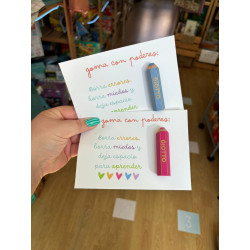 goma con poderes:
Borra errores,
borra miedos y
deja espacio
para aprender
goma con poderes:
Borra errores,
borra miedos y
deja espacio
para aprender
GIOTTO